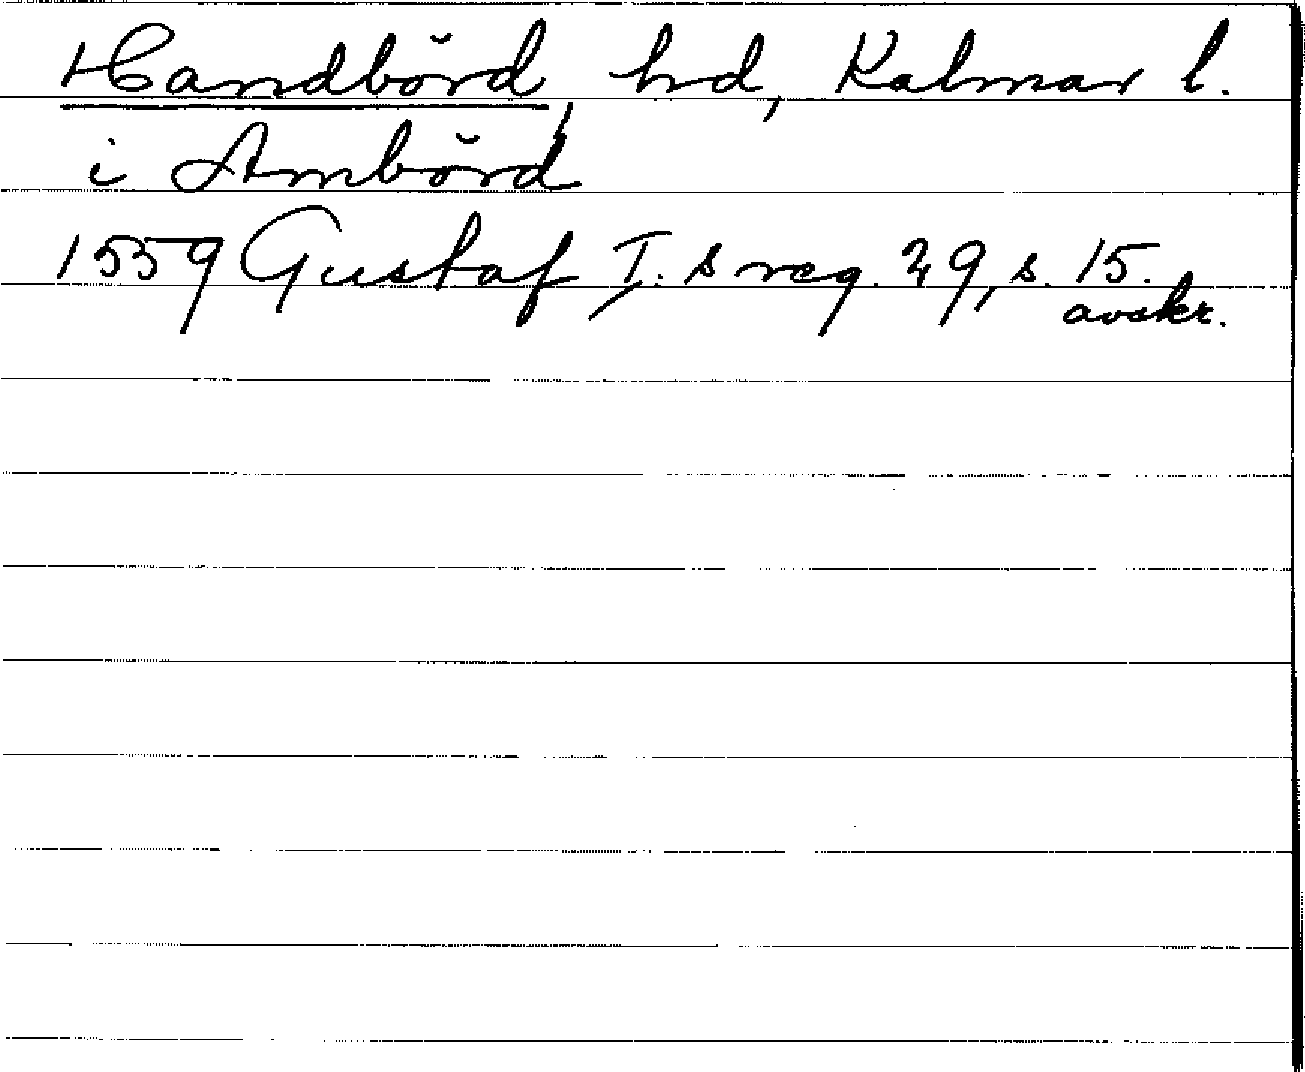 Handbörd, hd, Kalmar l.
i Ambörd
1559 Gustaf I:s reg. 29, s. 15.
avskr.